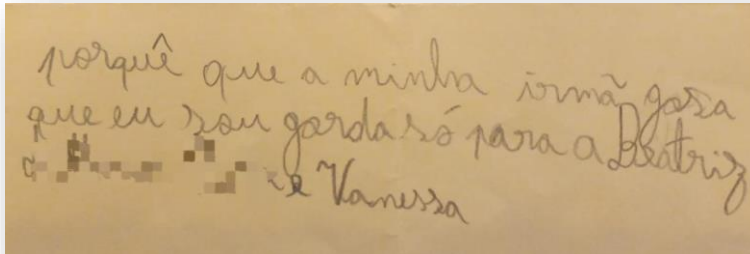 porquê que a minha irmã goza
que eu sou gorda só para a Beatriz
e Vanessa